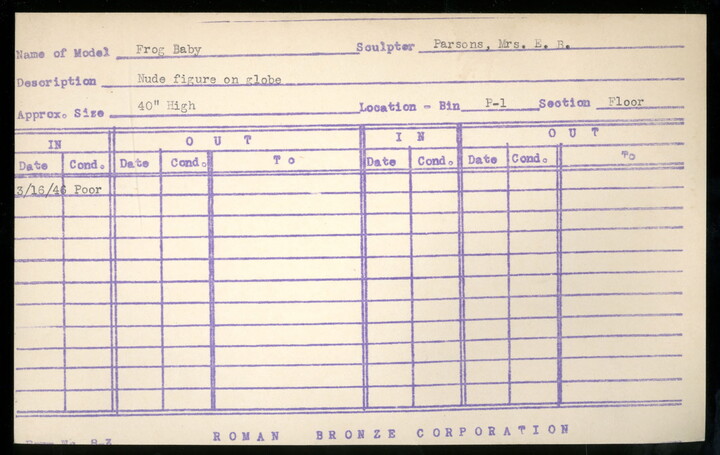 Name of Model Frog Baby Sculpter Parsons, Mrs. E. B.
Description Nude figure on globe
Approx. Size 40" High Location - Bin P-1 Section Floor
IN OUT IN OUT
Date Cond. Date Cond. To Date Cond. Date Cond. To
3/16/46 Poor
ROMAN BRONZE CORPORATION